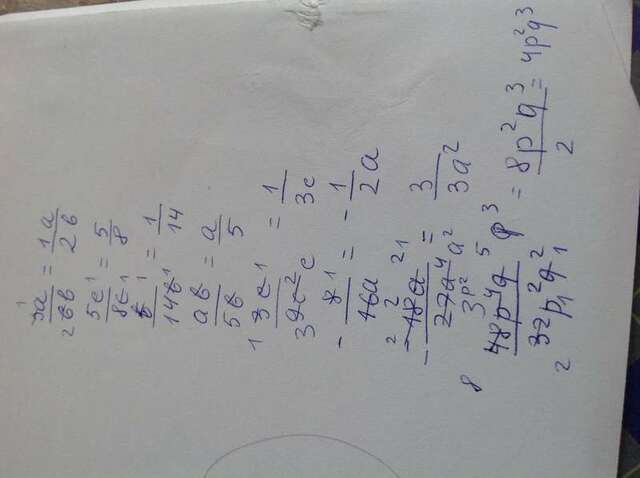 3a/6b = 1a/2b
5c/8c = 5/8
b/14b = 1/14
ab/5b = a/5
3c/9c² = 1/3c
-8/16a = -1/2a
-18a²/27a⁴ = 3/3a²
48p⁴q⁵/32p²q² = 8p²q³/2 = 4p²q³